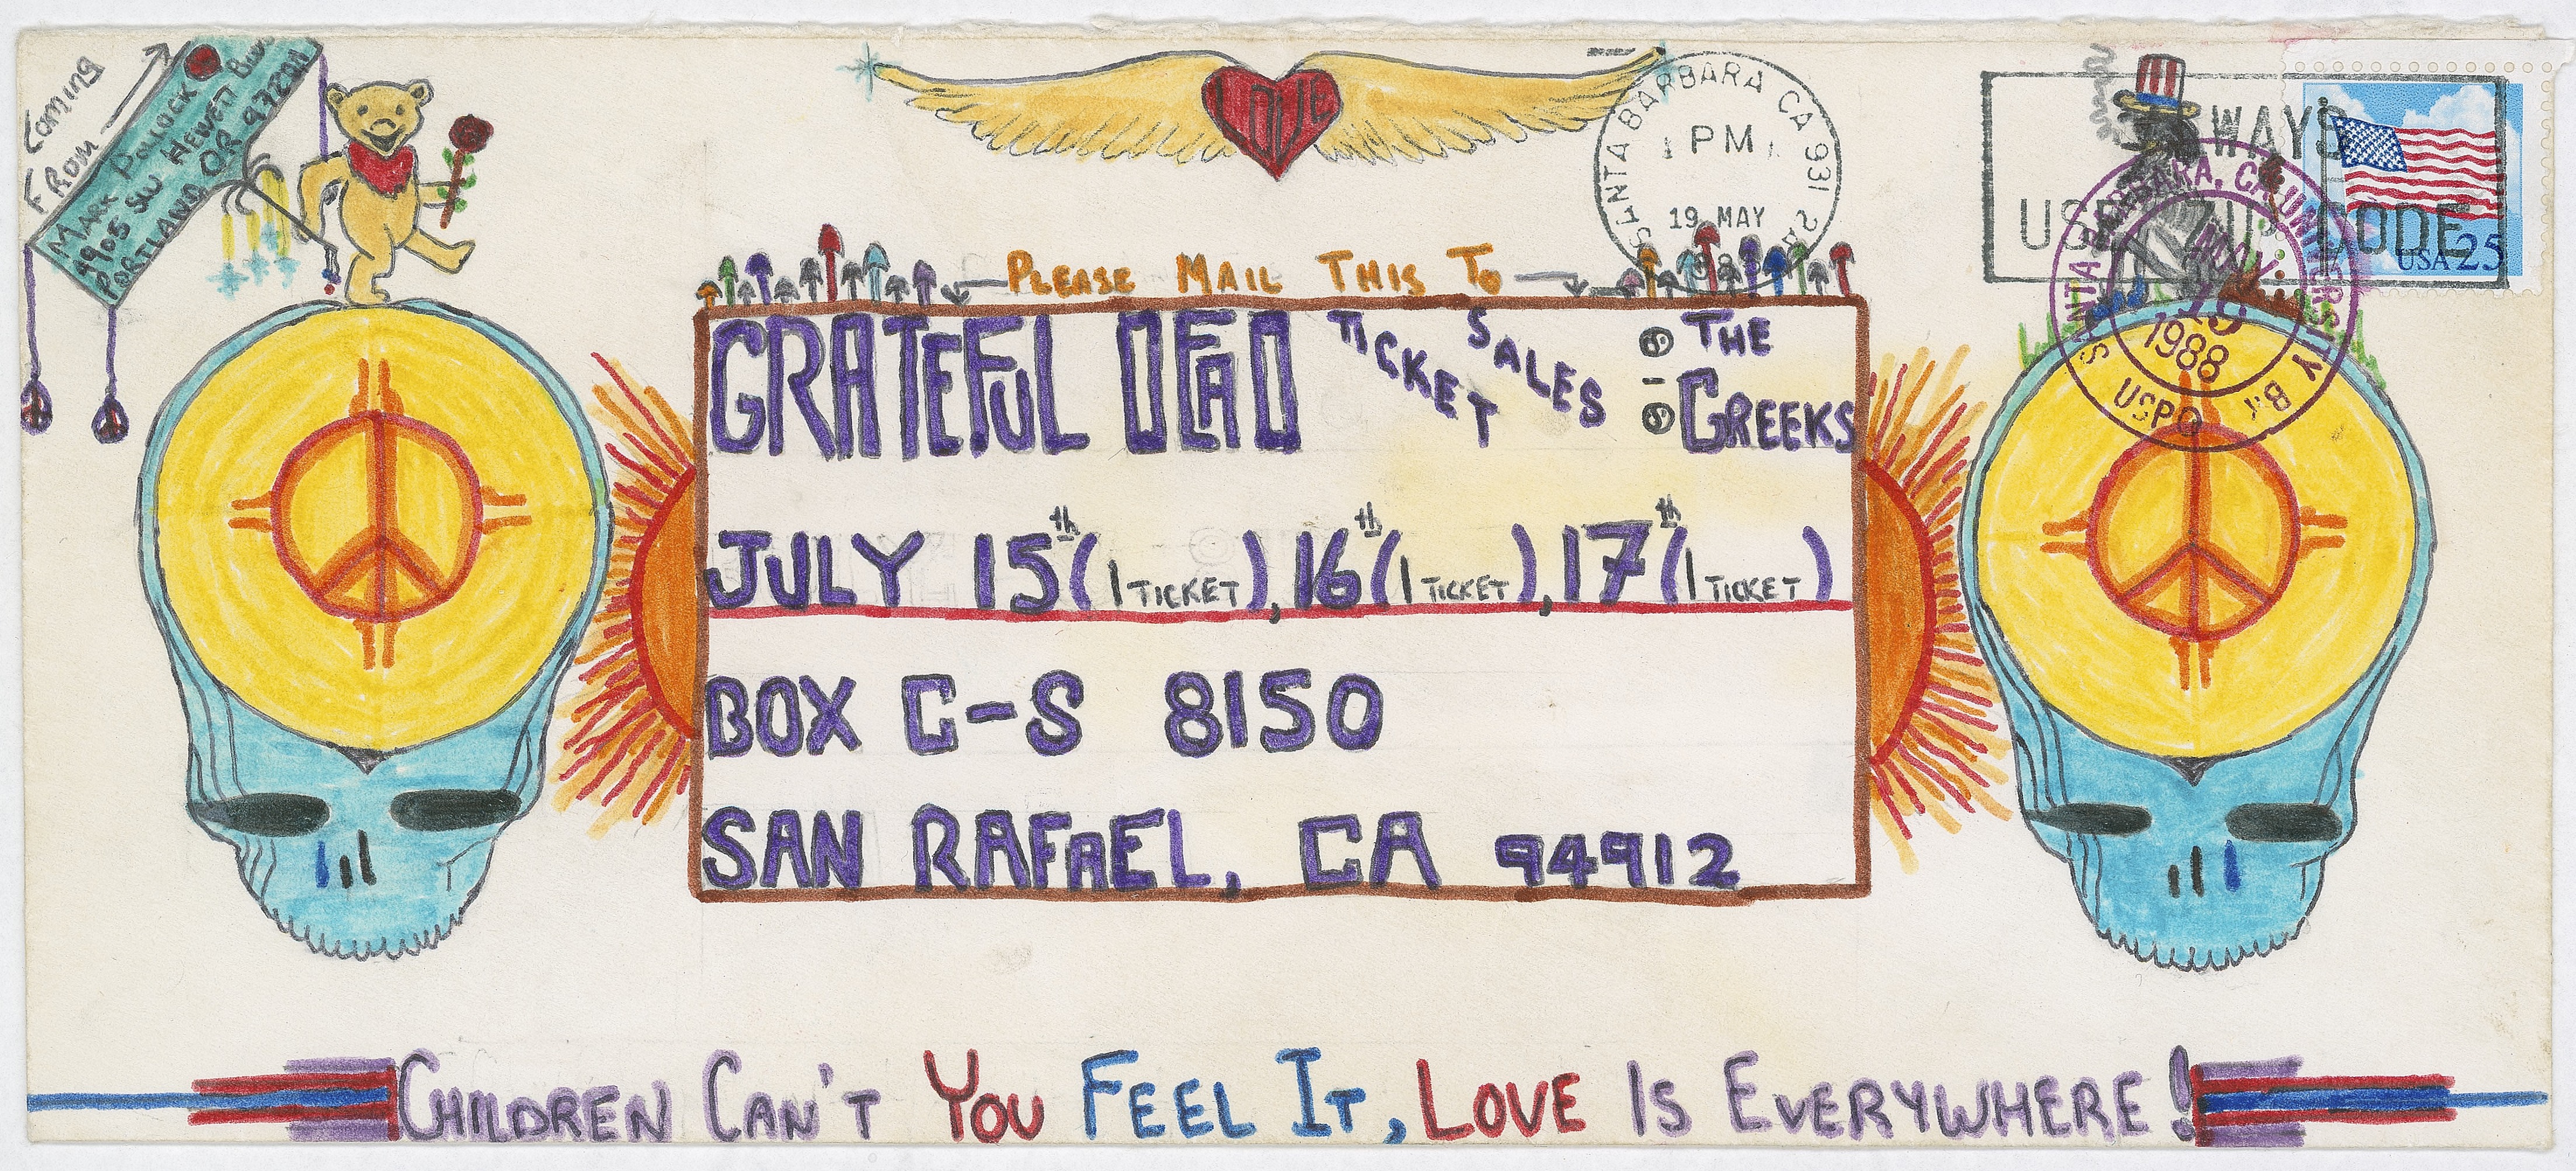 Coming
From
MARK POLLOCK
9905 SW HEWETT BLVD
PORTLAND, OR
LOVE
SANTA BARBARA CA 931
PM
19 MAY
1988
WAYS
USE CODE
USA 25
SANTA BARBARA, CA UNIVERSITY
MAY
19
1988
USPO
PLEASE MAIL THIS TO
GRATEFUL DEAD TICKET SALES THE
GREEKS
JULY 15th (1 TICKET), 16th (1 TICKET), 17th (1 TICKET)
BOX C-S 8150
SAN RAFAEL, CA 94912
CHILDREN CAN'T YOU FEEL IT, LOVE IS EVERYWHERE!